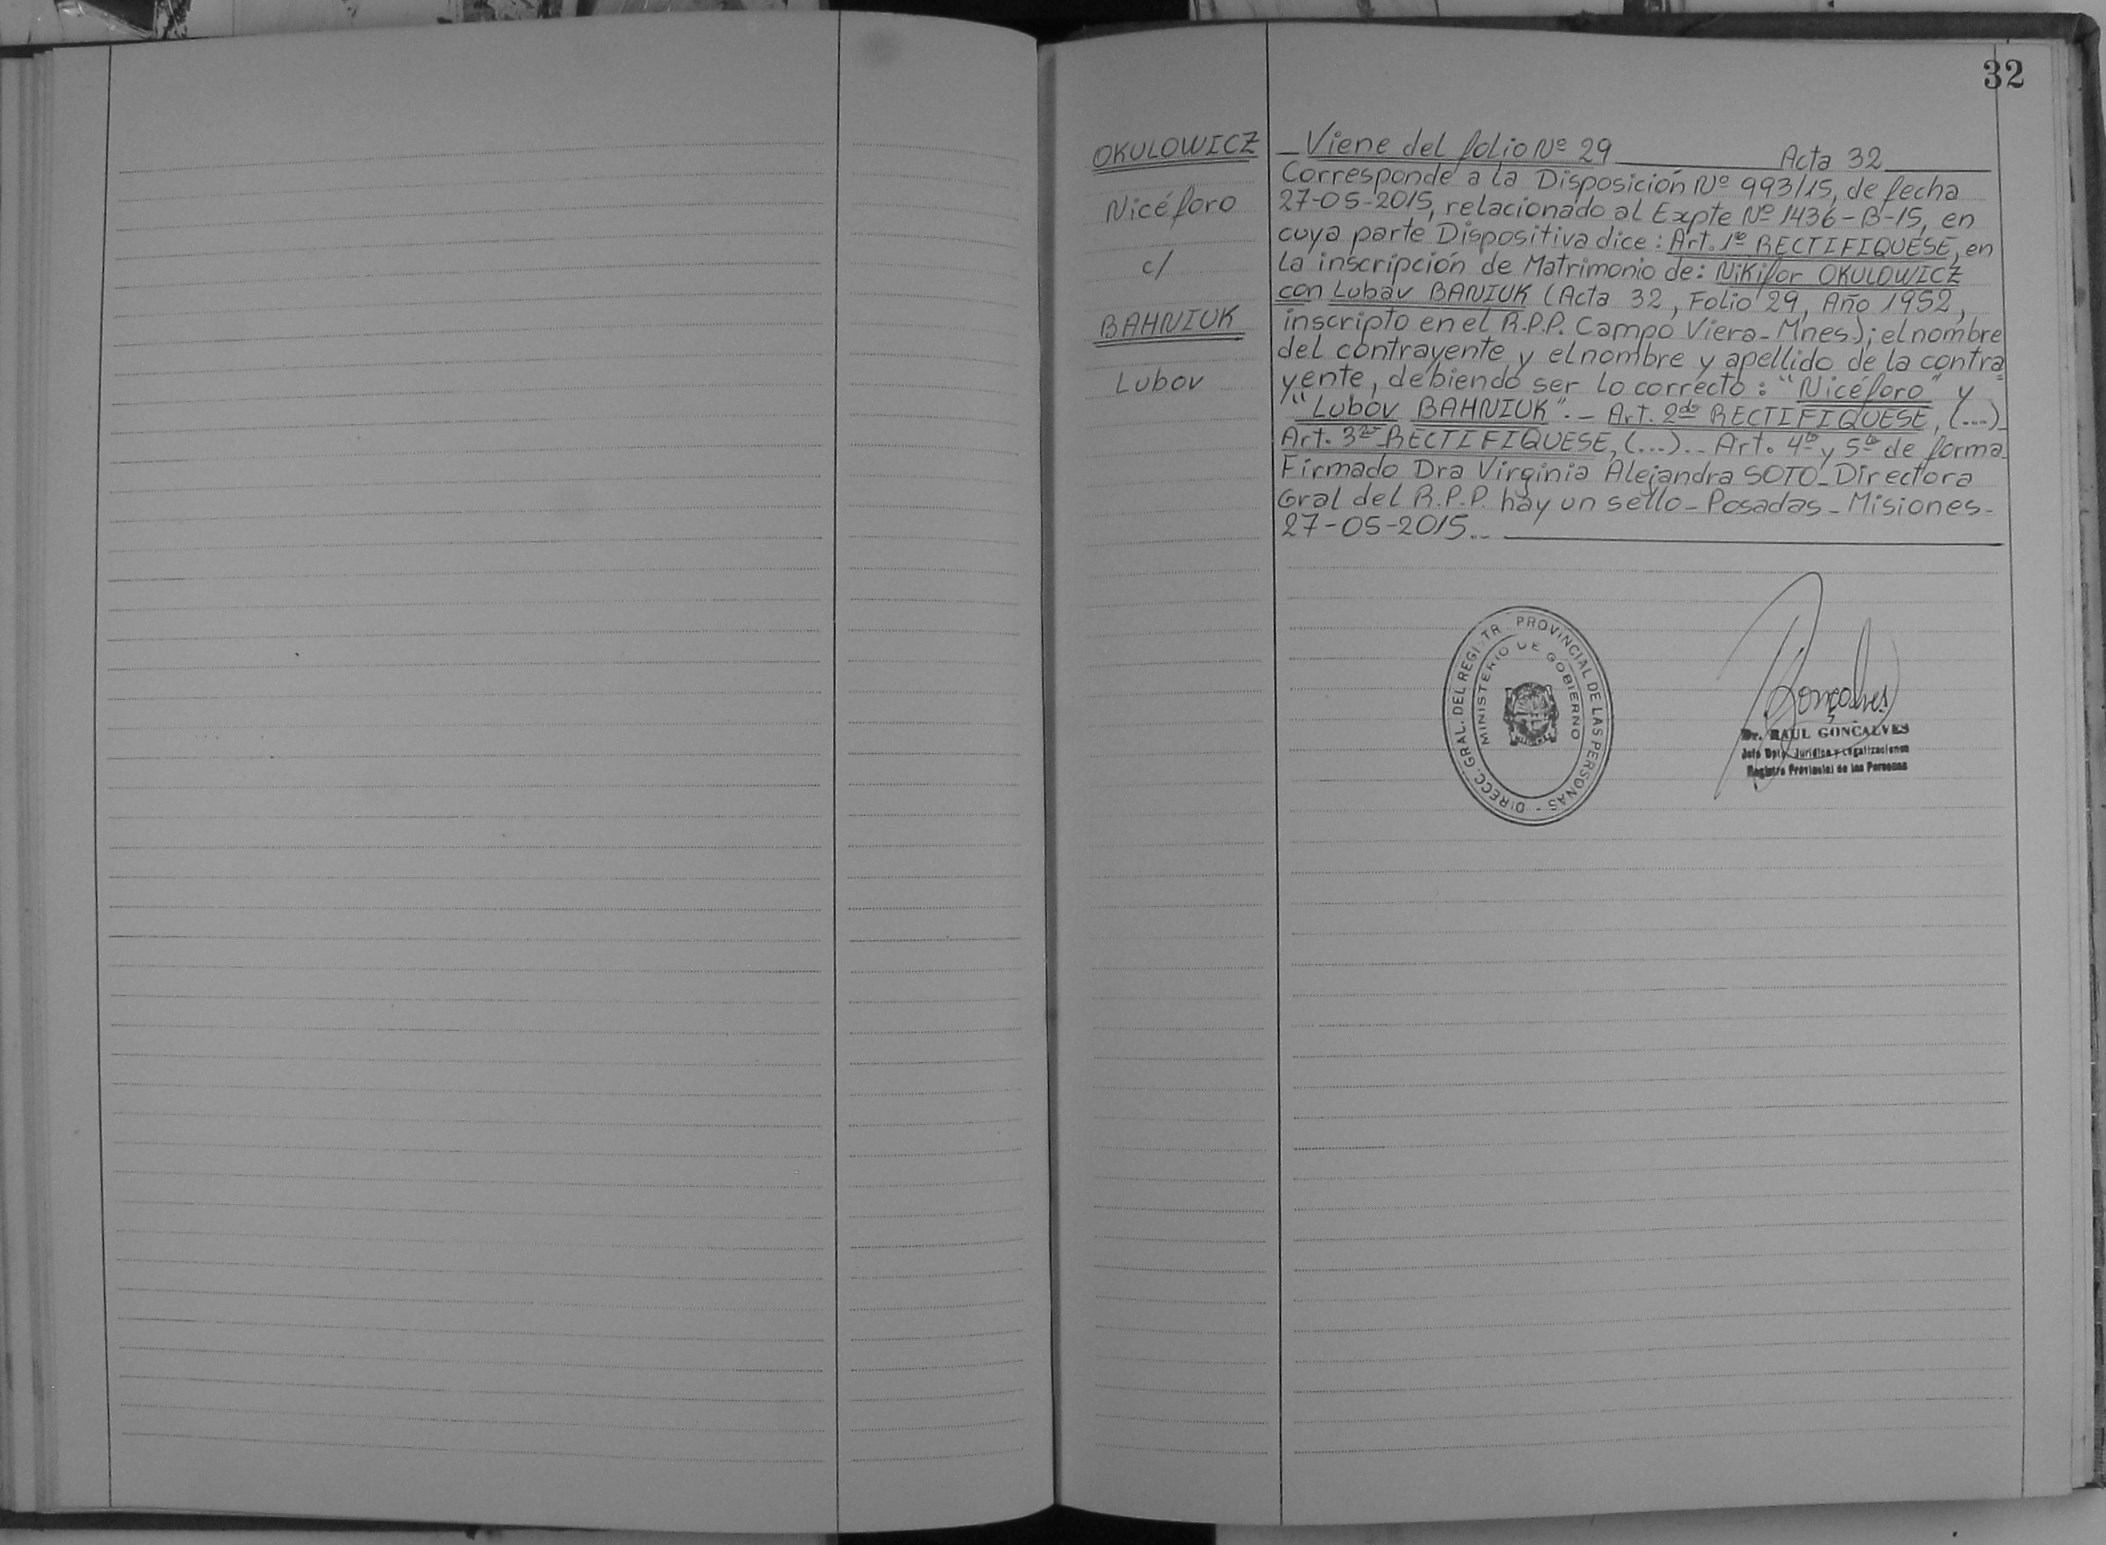 32
OKULOWICZ
Nicéforo
c/
BAHNIUK
Lubov
_Viene del folio Nº 29 Acta 32
Corresponde a la Disposición Nº 993/15, de fecha
27-05-2015, relacionado al Expte Nº 1436-B-15, en
cuya parte Dispositiva dice: Art. 1ro RECTIFIQUESE, en
la inscripción de Matrimonio de: Nikifor OKULOWICZ
con Lubav BANIUK (Acta 32, Folio 29, Año 1952,
inscripto en el R.P.P. Campo Viera-Mnes.); el nombre
del contrayente y el nombre y apellido de la contra
yente, debiendo ser lo correcto: "Nicéforo" y
"Lubov BAHNIUK".- Art. 2do RECTIFIQUESE, (...)-
Art. 3ro RECTIFIQUESE, (...)-- Art. 4to y 5to de forma-
Firmado Dra Virginia Alejandra SOTO-Directora
Gral del R.P.P. hay un sello-Posadas-Misiones-
27-05-2015.-
DIRECC. GRAL. DEL REGI TR PROVINCIAL DE LAS PERSONAS -
MINISTERIO DE GOBIERNO
Gonçalves
Dr. RAUL GONÇALVES
Jefe Dpto. Jurídico y Legalizaciones
Registro Provincial de las Personas